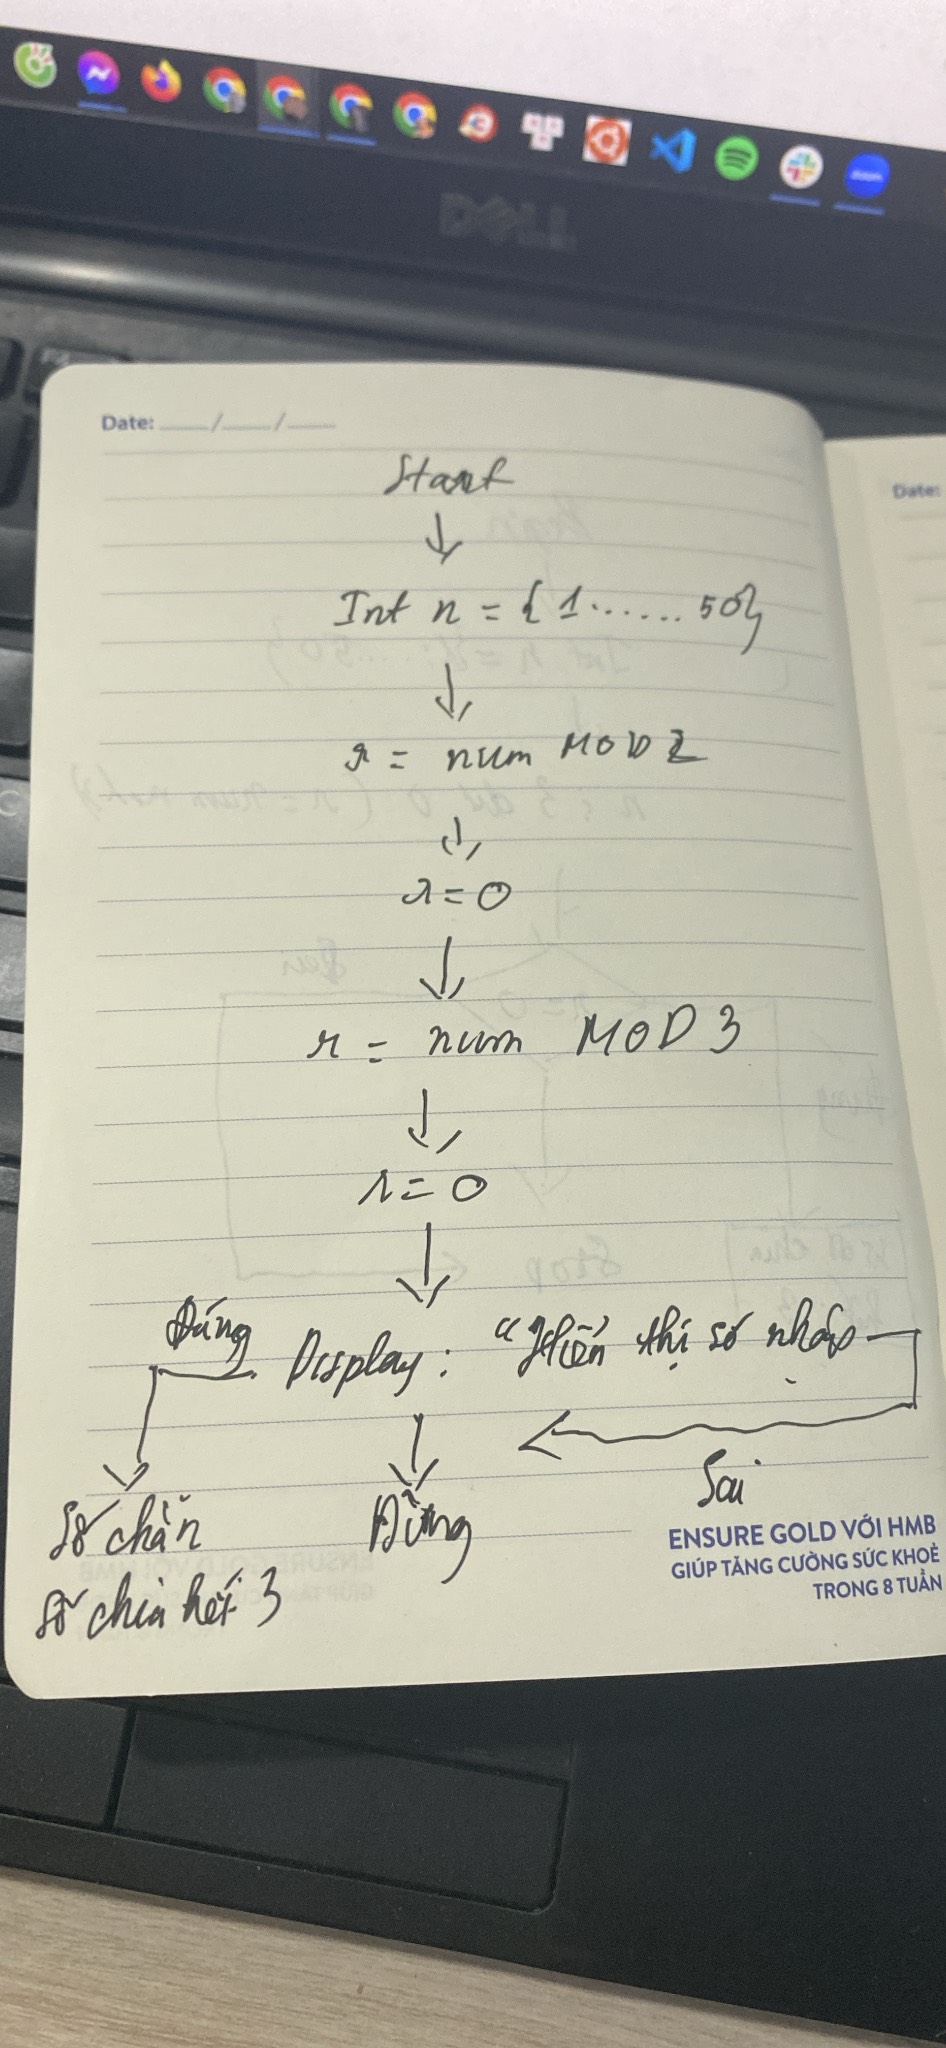 DELL
Date: ___/___/___
Date:
Start
Int n = { 1 ...... 50}
r = num MOD 2
r = 0
r = num MOD 3
r = 0
Đúng
Display: "Hiển thị số nhập
Sai
Số chẵn
Dừng
Số chia hết 3
ENSURE GOLD VỚI HMB
GIÚP TĂNG CƯỜNG SỨC KHOẺ
TRONG 8 TUẦN